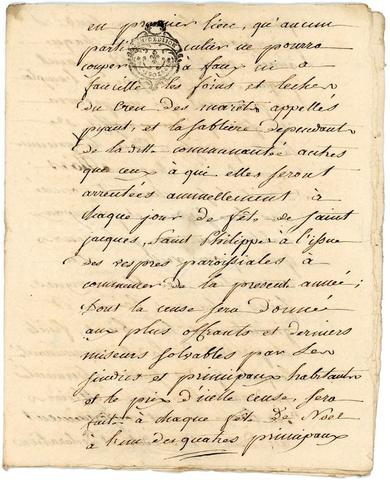 en premier lieu, qu'aucun
particulier ne pourra
couper à faux ni à
faucille les foins et leches
du Creu des marêts appellés
, et la sablière dependant
de la ditte communauté autres
que ceux à qui elles seront
arrentées annuellement à
chaque jour de fête de saint
jacques, saint Philippe à l'issue
des vespres paroissiales à
commencer de la presente année;
Dont la cense sera donné
aux plus offrants et derniers
miseurs solvables par les
sindics et principaux habitants
et le prix d'icelle cense, sera
fait à chaque fête de Noel
à l'un des quatres principaux